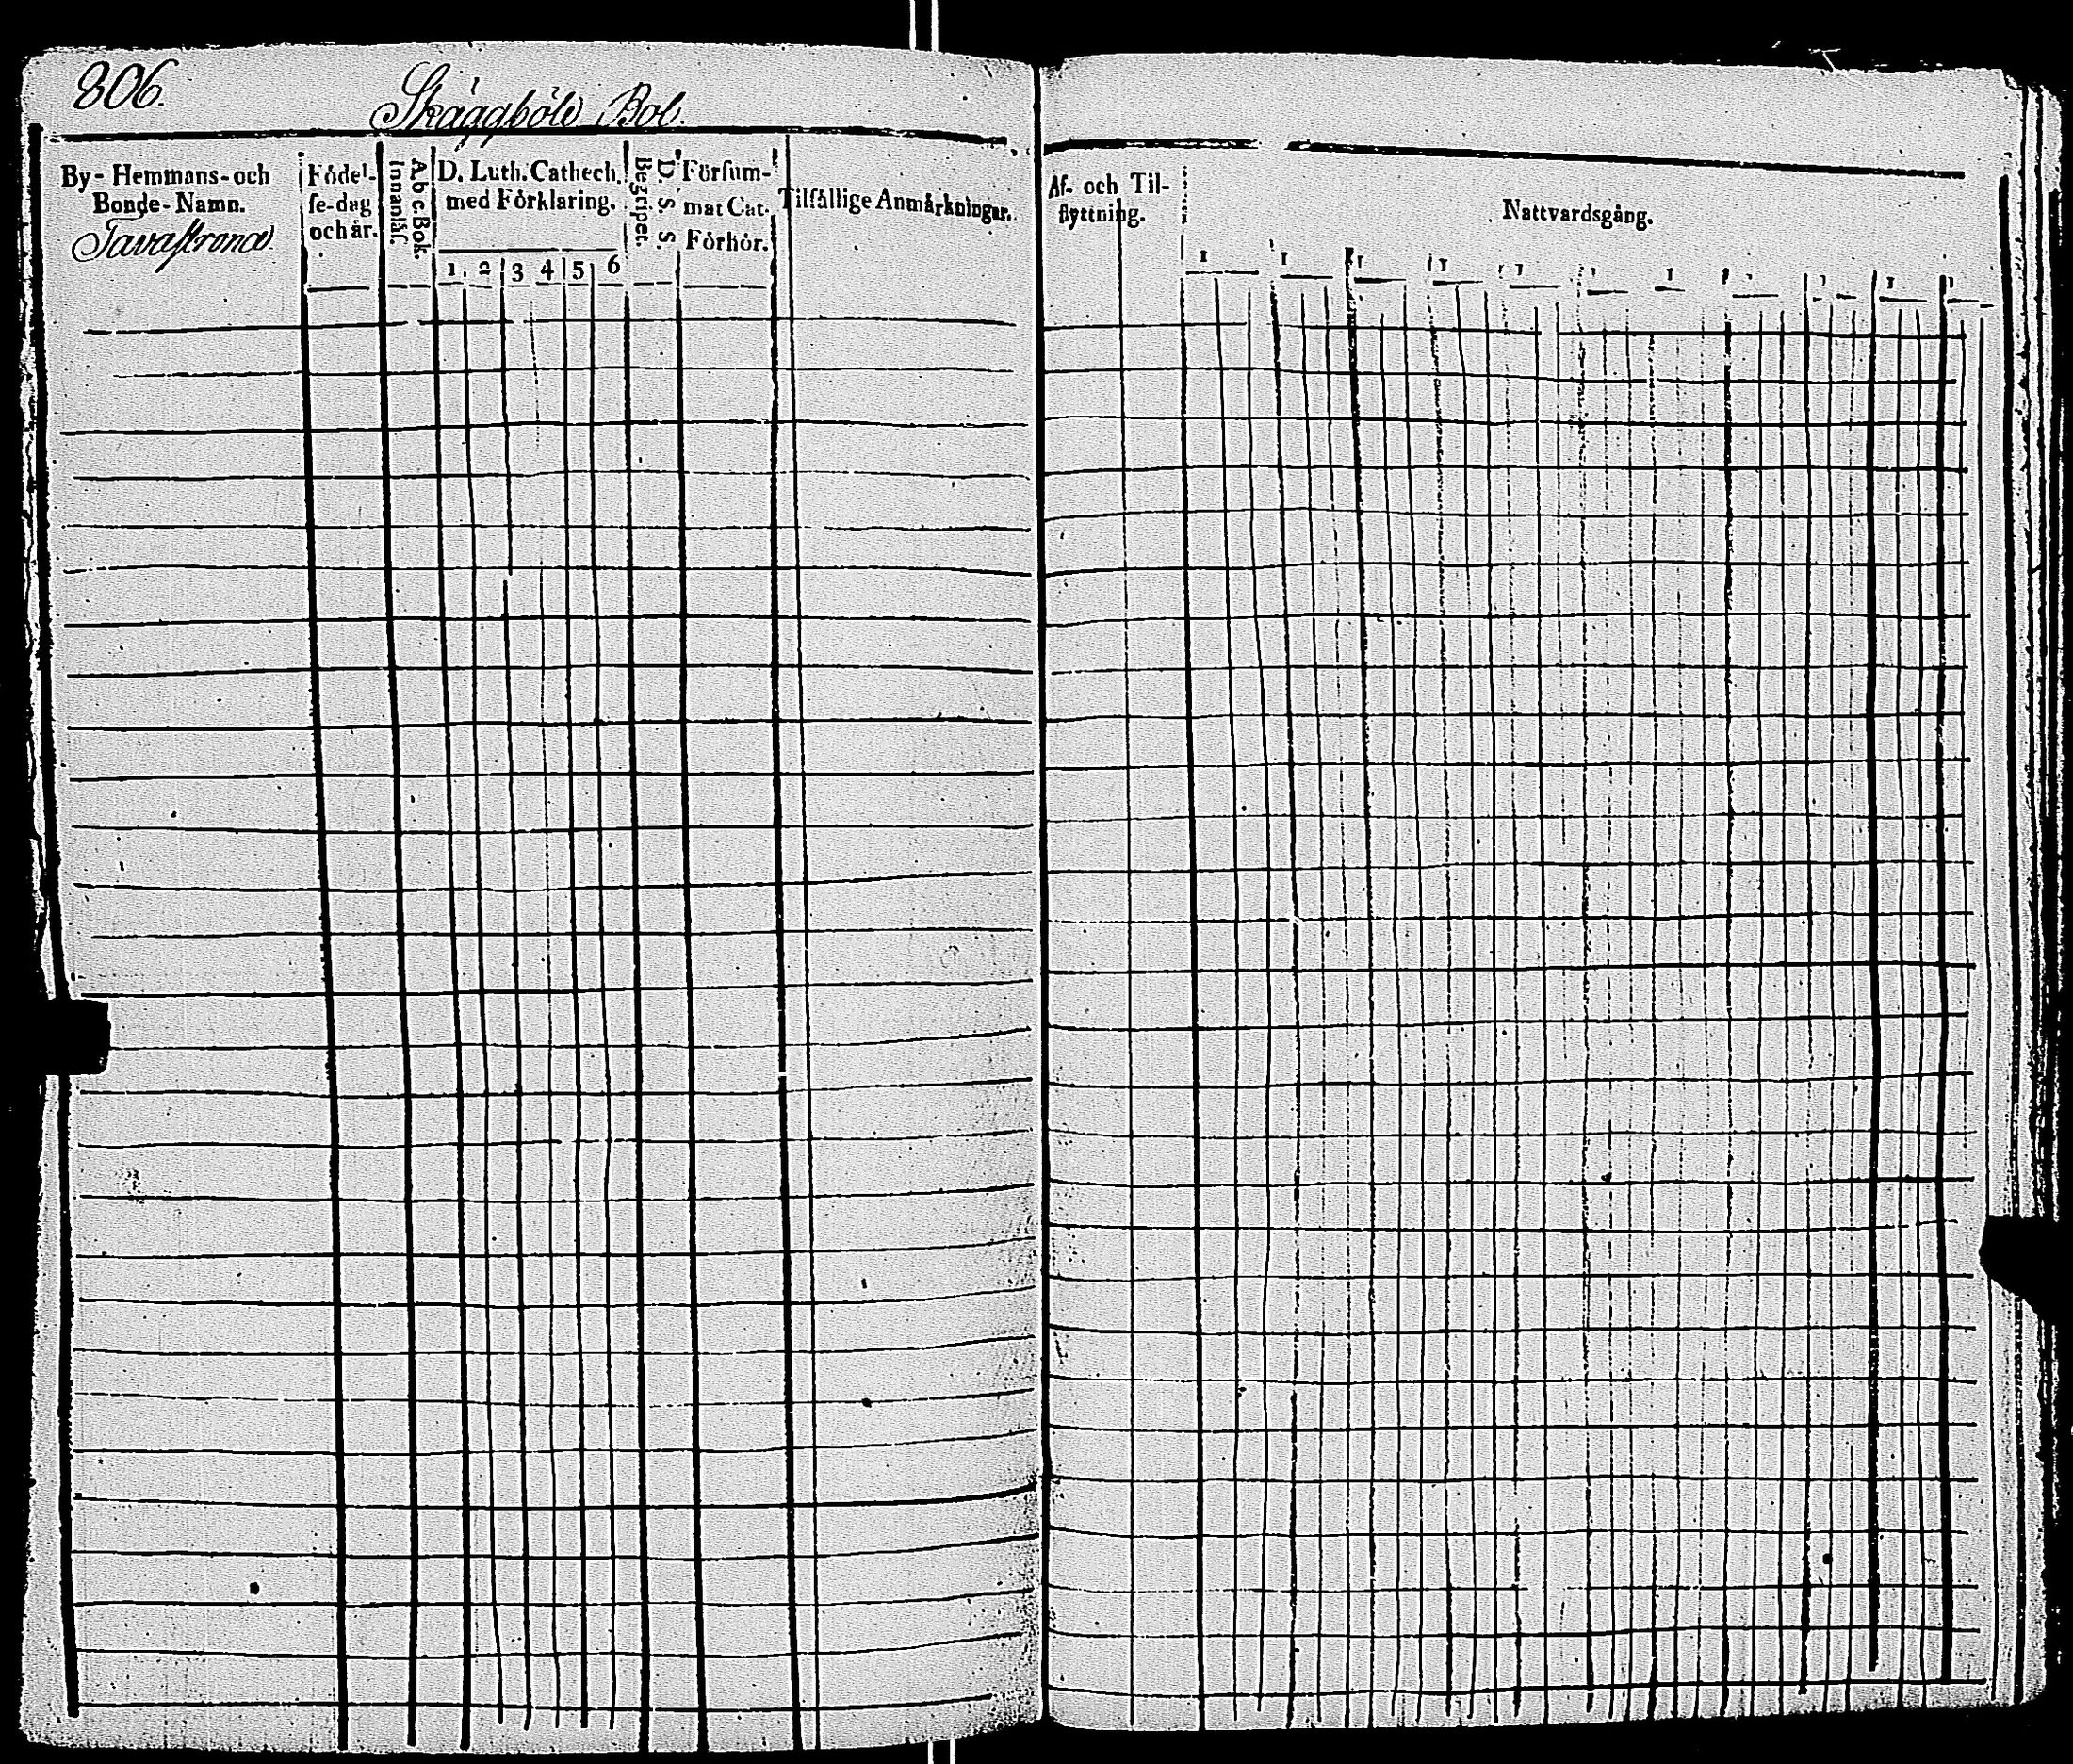 806.
Skäggböle Bol.
By-Hemmans-och
Bonde-Namn.
Födel-
se-dag
och år.
A b c-Bok.
Innanläs.
D. Luth. Cathech.
med Förklaring.
1. 2 3 4 5 6
Begripet.
D. S. S.
Försum-
mat Cat.
Förhör.
Tilfällige Anmärkningar.
Af- och Til-
flyttning.
Nattvardsgång.